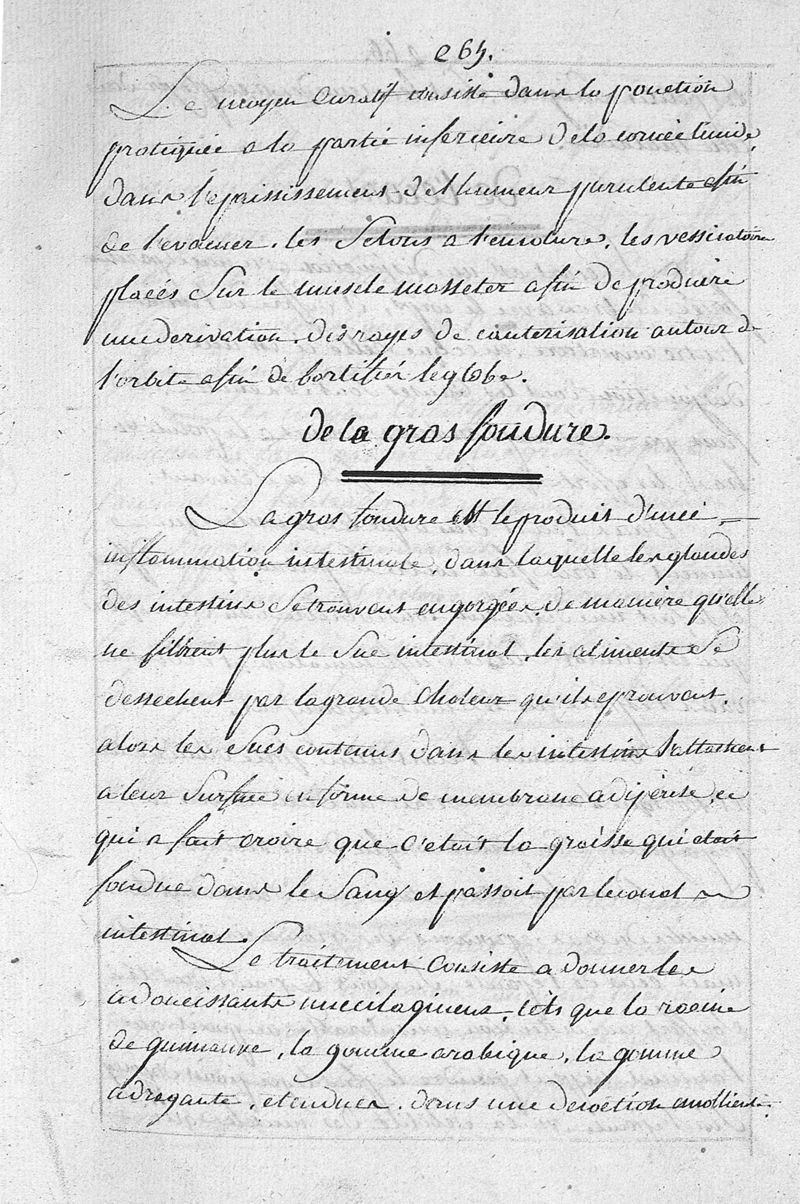 265.
Le moyen Curatif consiste dans la ponction
pratiquée a la partie inferieure de la cornée lucide
dans l'epaississement de l'humeur purulente afin
de l'evacuer. les Setons a l'encolure, les vessicatoire
placés Sur le muscle masseter afin de produire
une derivation. des rayes de cauterisation autour de
l'orbite afin de fortifier le globe.
de la gras fondure.
La gras fondure est le produit d'une
inflammation intestinale, dans laquelle les glandes
des intestins Se trouvent engorgées de maniere qu'elle
ne filtrent plus le Suc intestinal. les aliments Se
dessechent par la grande chaleur qu'ils eprouvent.
alors les Sucs contenus dans les intestins S'attachent
a leur Surface en forme de membrane adipeuse, ce
qui a fait croire que c'etait la graisse qui etait
fondue dans le Sang et passoit par le canal
intestinal.
Le traitement Consiste a donner les
adoucissants mucilagineux, tels que la racine
de guimauve, la gomme arabique, la gomme
adragante, etendues dans une decoction emolliente.